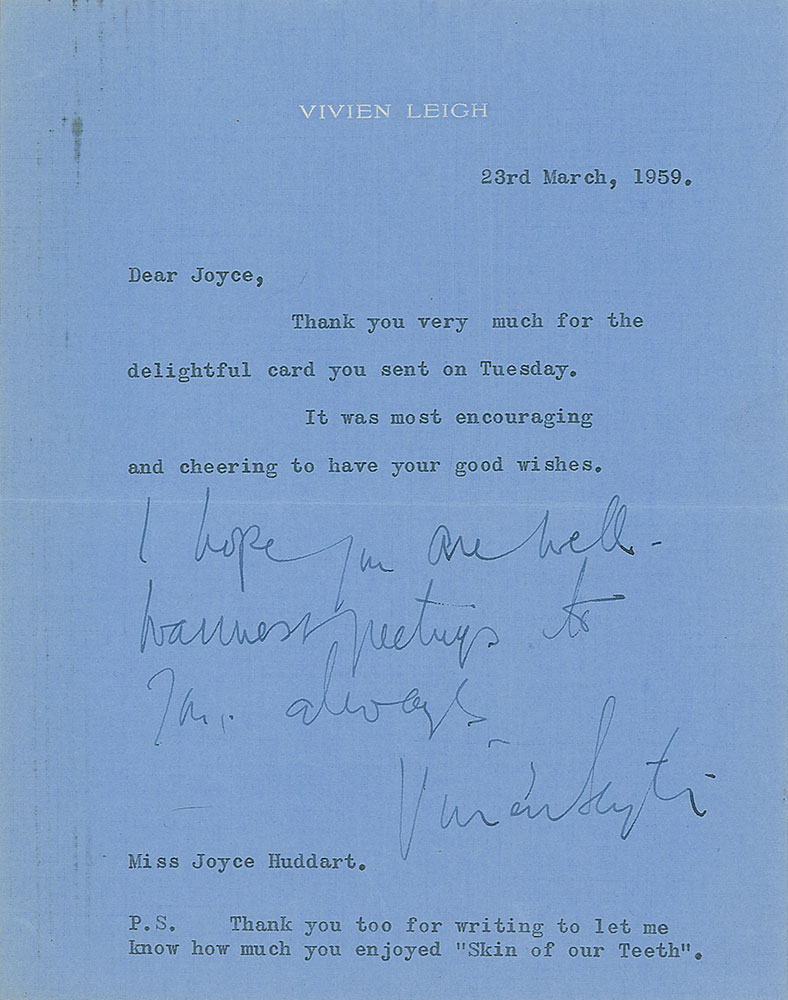 VIVIEN LEIGH
23rd March, 1959.
Dear Joyce,
Thank you very much for the
delightful card you sent on Tuesday.
It was most encouraging
and cheering to have your good wishes.
I hope you are well -
warmest greetings to
you. always
Vivien Leigh
Miss Joyce Huddart.
P.S. Thank you too for writing to let me
know how much you enjoyed "Skin of our Teeth".